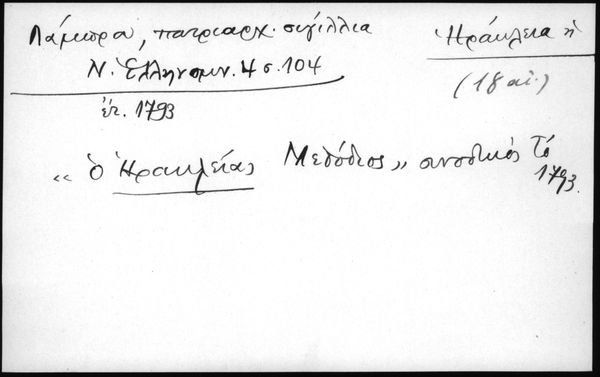 Λάμπρου, πατριαρχ. σιγίλλια
Ν. Ἑλληνομν. 4 σ. 104
ἔτ. 1793
Ἡράκλεια ἡ
(18 αἰ.)
« ὁ Ἡρακλείας Μεθόδιος » συνοδικὸς τό
1793.